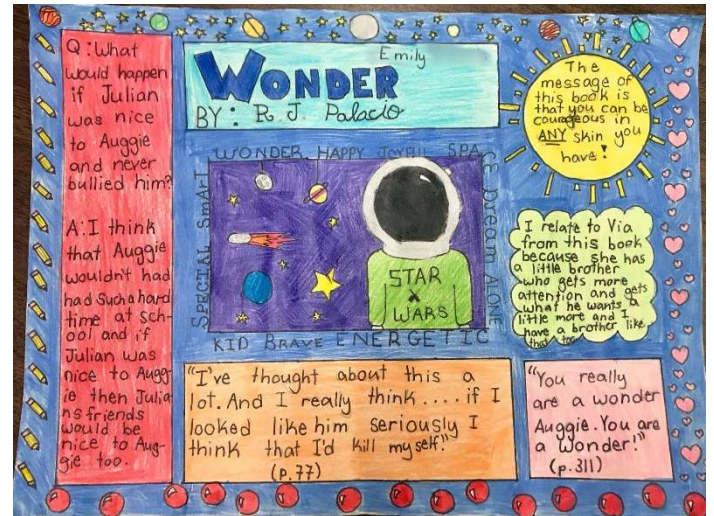 Q: What
would happen
if Julian
was nice
to Auggie
and never
bullied him?
A: I think
that Auggie
wouldn't had
had such a hard
time at sch-
ool and if
Julian was
nice to Augg
ie then Julia
ns friends
would be
nice to Aug-
gie too.
Emily
WONDER
BY: R J Palacio
WONDER HAPPY JOYFUL SPA
CE Dream ALONE
SPECIAL SmArT
STAR
WARS
KID BRAVE ENERGETIC
The
message of
this book is
that you can be
courageous in
ANY skin you
have!
I relate to Via
from this book
because she has
a little brother
who gets more
attention and gets
what he wants a
little more and I
have a brother like
that too.
"I've thought about this a
lot. And I really think.... if I
looked like him seriously I
think that I'd kill myself."
(p.77)
"You really
are a wonder
Auggie. You are
a wonder!"
(p.311)